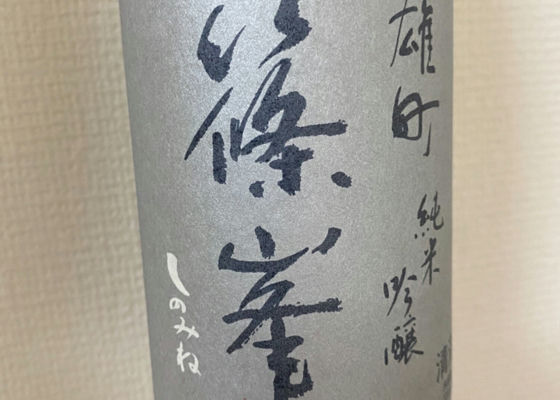 雄町 純米
吟醸
篠峯
しのみね